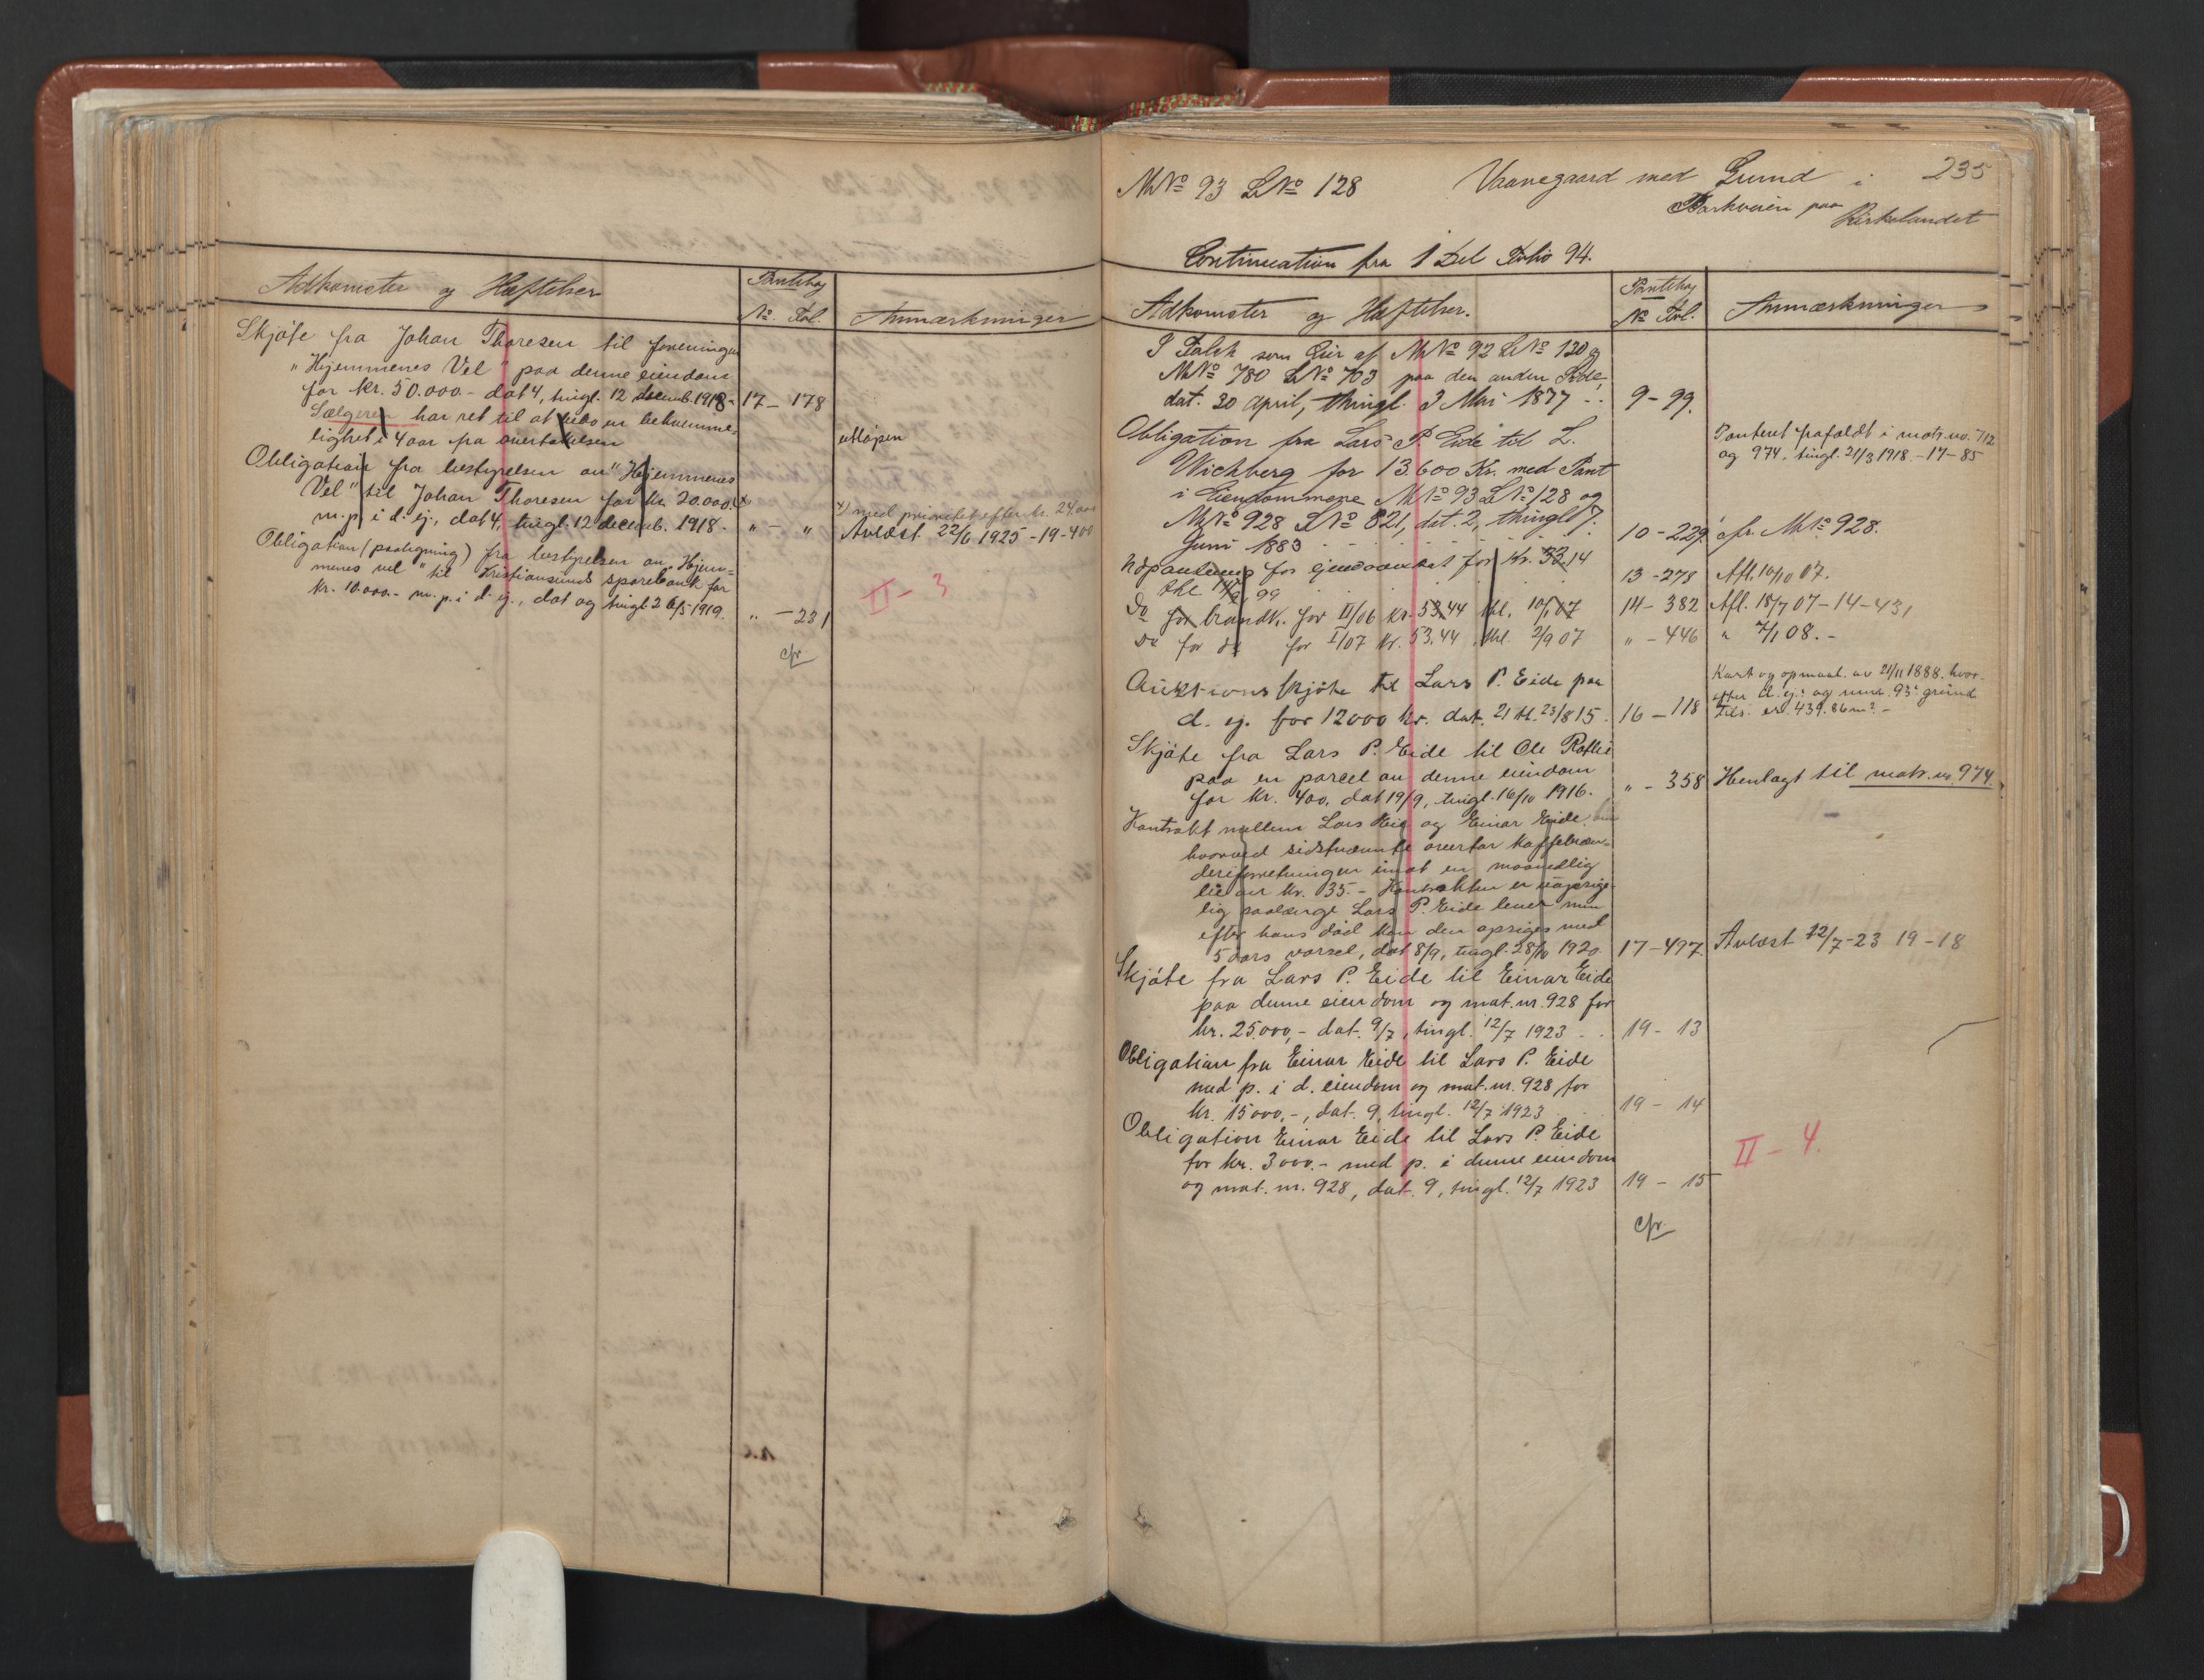 Adkomster og Hæftelser
Pantebog
No. Fol.
Anmærkninger
Skjøte fra Johan Thoresen til foreningen
"Hjemmenes Vel" paa denne eiendom
for kr. 50.000.- dat 4, tingl. 12 decemb. 1918- 17 - 178
Sælgeren har ret til at bebo en bekvemme-
lighet i 4 aar fra overtakelsen utløpen
Obligation fra bestyrelsen av "Hjemmenes
Vel" til Johan Thoresen for kr. 20.000.- x
x) med prioritet efter kr. 24000
m. p. i d. ej., dat 4, tingl. 12 decemb. 1918 - " - " Avlæst 22/6 1925 - 19 - 400
Obligation (paategning) fra bestyrelsen av "Hjem-
menes vel" til Kristiansunds sparebank for
kr. 10.000.- m. p. i d. ej., dat og tingl 26/5 1919. " - 231
II - 3
cfr
235
M No 93 L No 128 Vaanegaard med Grund i
Parkveien paa
Kirkelandet
Continuation fra 1 Del Folio 94.
Adkomster og Hæftelser.
Pantebog
No Fol.
Anmærkninger
P Falch som Eier af M No 92 L No 130 og
M No 780 L No 703 paa den anden Side,
dat. 30 April, thingl. 3 Mai 1877 - - 9 - 99.
Obligation fra Lars P. Eide til L.
Wichberg for 13.600 Kr. med Pant
i Eiendommene M No 93 L No 128 og
M No 928 L No 821, dat. 2, thingl 7.
Juni 1883 10 - 229.
Panteret frafaldt i matr. no. 712
og 974, tingl. 21/3 1918 - 17 - 85
cfr. M No 928.
Udpantning for Kr. 33.14
13 - 278 Afl. 10/10 07.
Do for brandk. for II/06 kr. 53.44 14 - 382 Afl. 18/7 07 - 14 - 431
Do for do for I/07 kr. 53.44 2/9 07 " - 446 " 7/1 08. -
Auktionsskjøte til Lars P. Eide paa
d. ej. for 12000 kr. dat. 21 tl. 23/8 15. 16 - 118
Kart og opmaal. av 21/11 1888. hvor-
efter d. ej.s og grund
er 439.86 m2 -
Skjøte fra Lars P. Eide til Ole
paa en parcel av denne eiendom
for kr. 400, dat 19/9, tingl. 16/10 1916. " - 358 Henlagt til matr. no. 974.
Kontrakt mellem Lars Eide og Einar Eide
hvorved sidstnævnte overtar kaffebræn-
deriforretningen imot en maanedlig
leie av kr. 35. - Kontrakten er uopsige-
lig saalænge Lars P. Eide lever men
efter hans død kan den opsiges med
5 aars varsel, dat 8/9, tingl. 28/10 1920. 17 - 497. Avlæst 12/7 - 23 19 - 18
Skjøte fra Lars P. Eide til Einar Eide
paa denne eiendom og mat. nr. 928 for
kr. 25.000,- dat. 9/7, tingl. 12/7 1923 - . 19 - 13
Obligation fra Einar Eide til Lars P. Eide
med p. i d. eiendom og mat. nr. 928 for
kr. 15000.-, dat. 9, tingl. 12/7 1923 19 - 14
Obligation Einar Eide til Lars P. Eide
for kr. 3000.- med p. i denne eiendom
og mat. nr. 928, dat. 9, tingl. 12/7 1923 19 - 15
II - 4.
cfr.